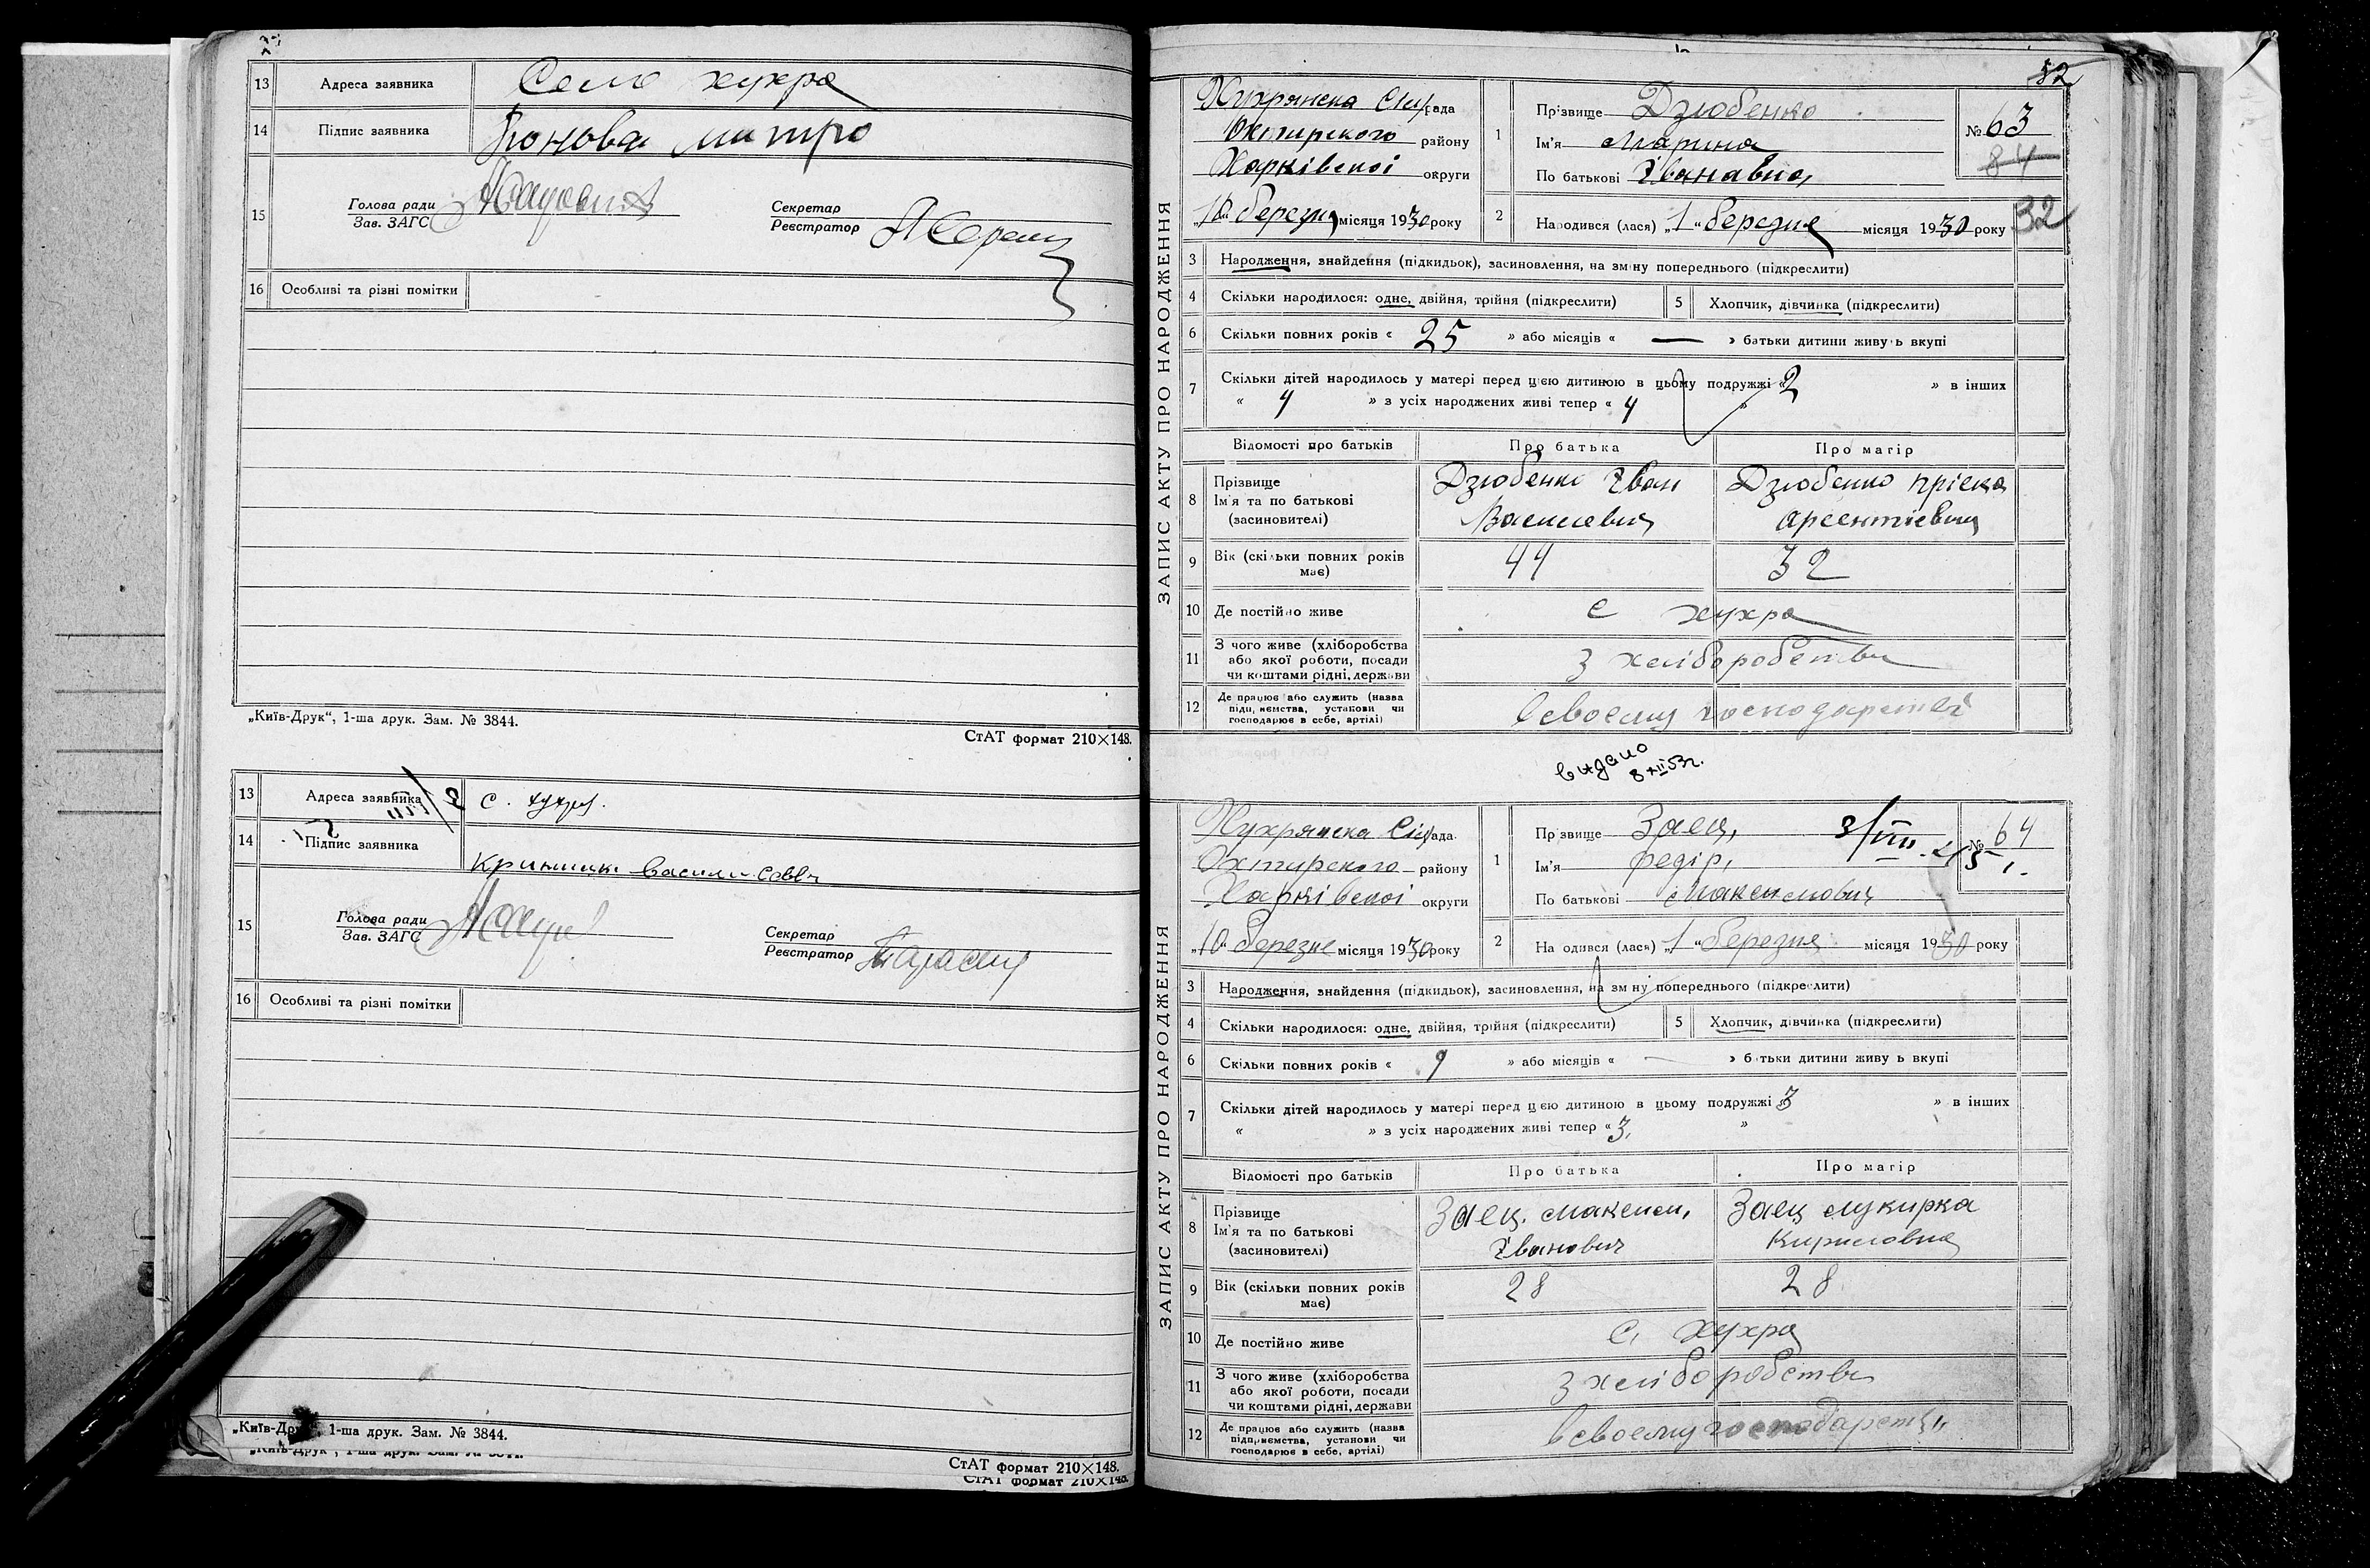 13 Адреса заявника Село хухра
14 Підпис заявника Коновал митро
15 Голова ради
Зав. ЗАГС
Секретар
Реєстратор
16 Особливі та різні помітки
„Київ-Друк“, 1-ша друк. Зам. № 3844.
СтАТ формат 210×148.
13 Адреса заявника с. хухра.
14 Підпис заявника
15 Голова ради
Зав. ЗАГС
Секретар
Реєстратор
16 Особливі та різні помітки
„Київ-Друк“, 1-ша друк. Зам. № 3844.
СтАТ формат 210×148.
СтАТ формат 210×148.
82
ЗАПИС АКТУ ПРО НАРОДЖЕННЯ
Хухрянска Сіль рада
Охтирского району
Харківскої округи
„10“ березня місяця 1930 року
1 Прізвище Дзюбенко
Ім'я Марина
По батькові Іванавна
№ 63
84
32
2 Народився (лася) „1“ березня місяця 1930 року
3 Народження, знайдення (підкидьок), засиновлення, на зміну попереднього (підкреслити)
4 Скільки народилося: одне, двійня, трійня (підкреслити)
5 Хлопчик, дівчинка (підкреслити)
6 Скільки повних років « 25 » або місяців « — » батьки дитини живуть вкупі
7 Скільки дітей народилось у матері перед цією дитиною в цьому подружжі « 2 » в інших
« 4 » з усіх народжених живі тепер « 4 »
Відомості про батьків Про батька Про матір
8 Прізвище
Ім'я та по батькові
(засиновителі)
Дзюбенко Іван
Василевич
Дзюбенко Пріска
Арсентієвна
9 Вік (скільки повних років має) 44 32
10 Де постійно живе с хухра
11 З чого живе (хліборобства
або якої роботи, посади
чи коштами рідні, держави
З хліборобства
12 Де працює або служить (назва
підприємства, установи чи
господарює в себе, артілі)
В своєму господарстві
видано
8 XII 53 г.
ЗАПИС АКТУ ПРО НАРОДЖЕННЯ
Хухрянска Сіль рада
Охтирского району
Харківскої округи
„10“ березня місяця 1930 року
1 Прізвище Заец,
Ім'я Федір,
По батькові Максимович
№ 64
2 Народився (лася) „1“ березня місяця 1930 року
3 Народження, знайдення (підкидьок), засиновлення, на зміну попереднього (підкреслити)
4 Скільки народилося: одне, двійня, трійня (підкреслити)
5 Хлопчик, дівчинка (підкреслити)
6 Скільки повних років « 9 » або місяців « — » батьки дитини живуть вкупі
7 Скільки дітей народилось у матері перед цією дитиною в цьому подружжі « 3 » в інших
« » з усіх народжених живі тепер « 3. »
Відомості про батьків Про батька Про матір
8 Прізвище
Ім'я та по батькові
(засиновителі)
Заец. Максим,
Іванович
Заец лукирка
Кириловна
9 Вік (скільки повних років має) 28 28
10 Де постійно живе с. Хухра
11 З чого живе (хліборобства
або якої роботи, посади
чи коштами рідні, держави
З хліборобства
12 Де працює або служить (назва
підприємства, установи чи
господарює в себе, артілі)
В своєму господарстві